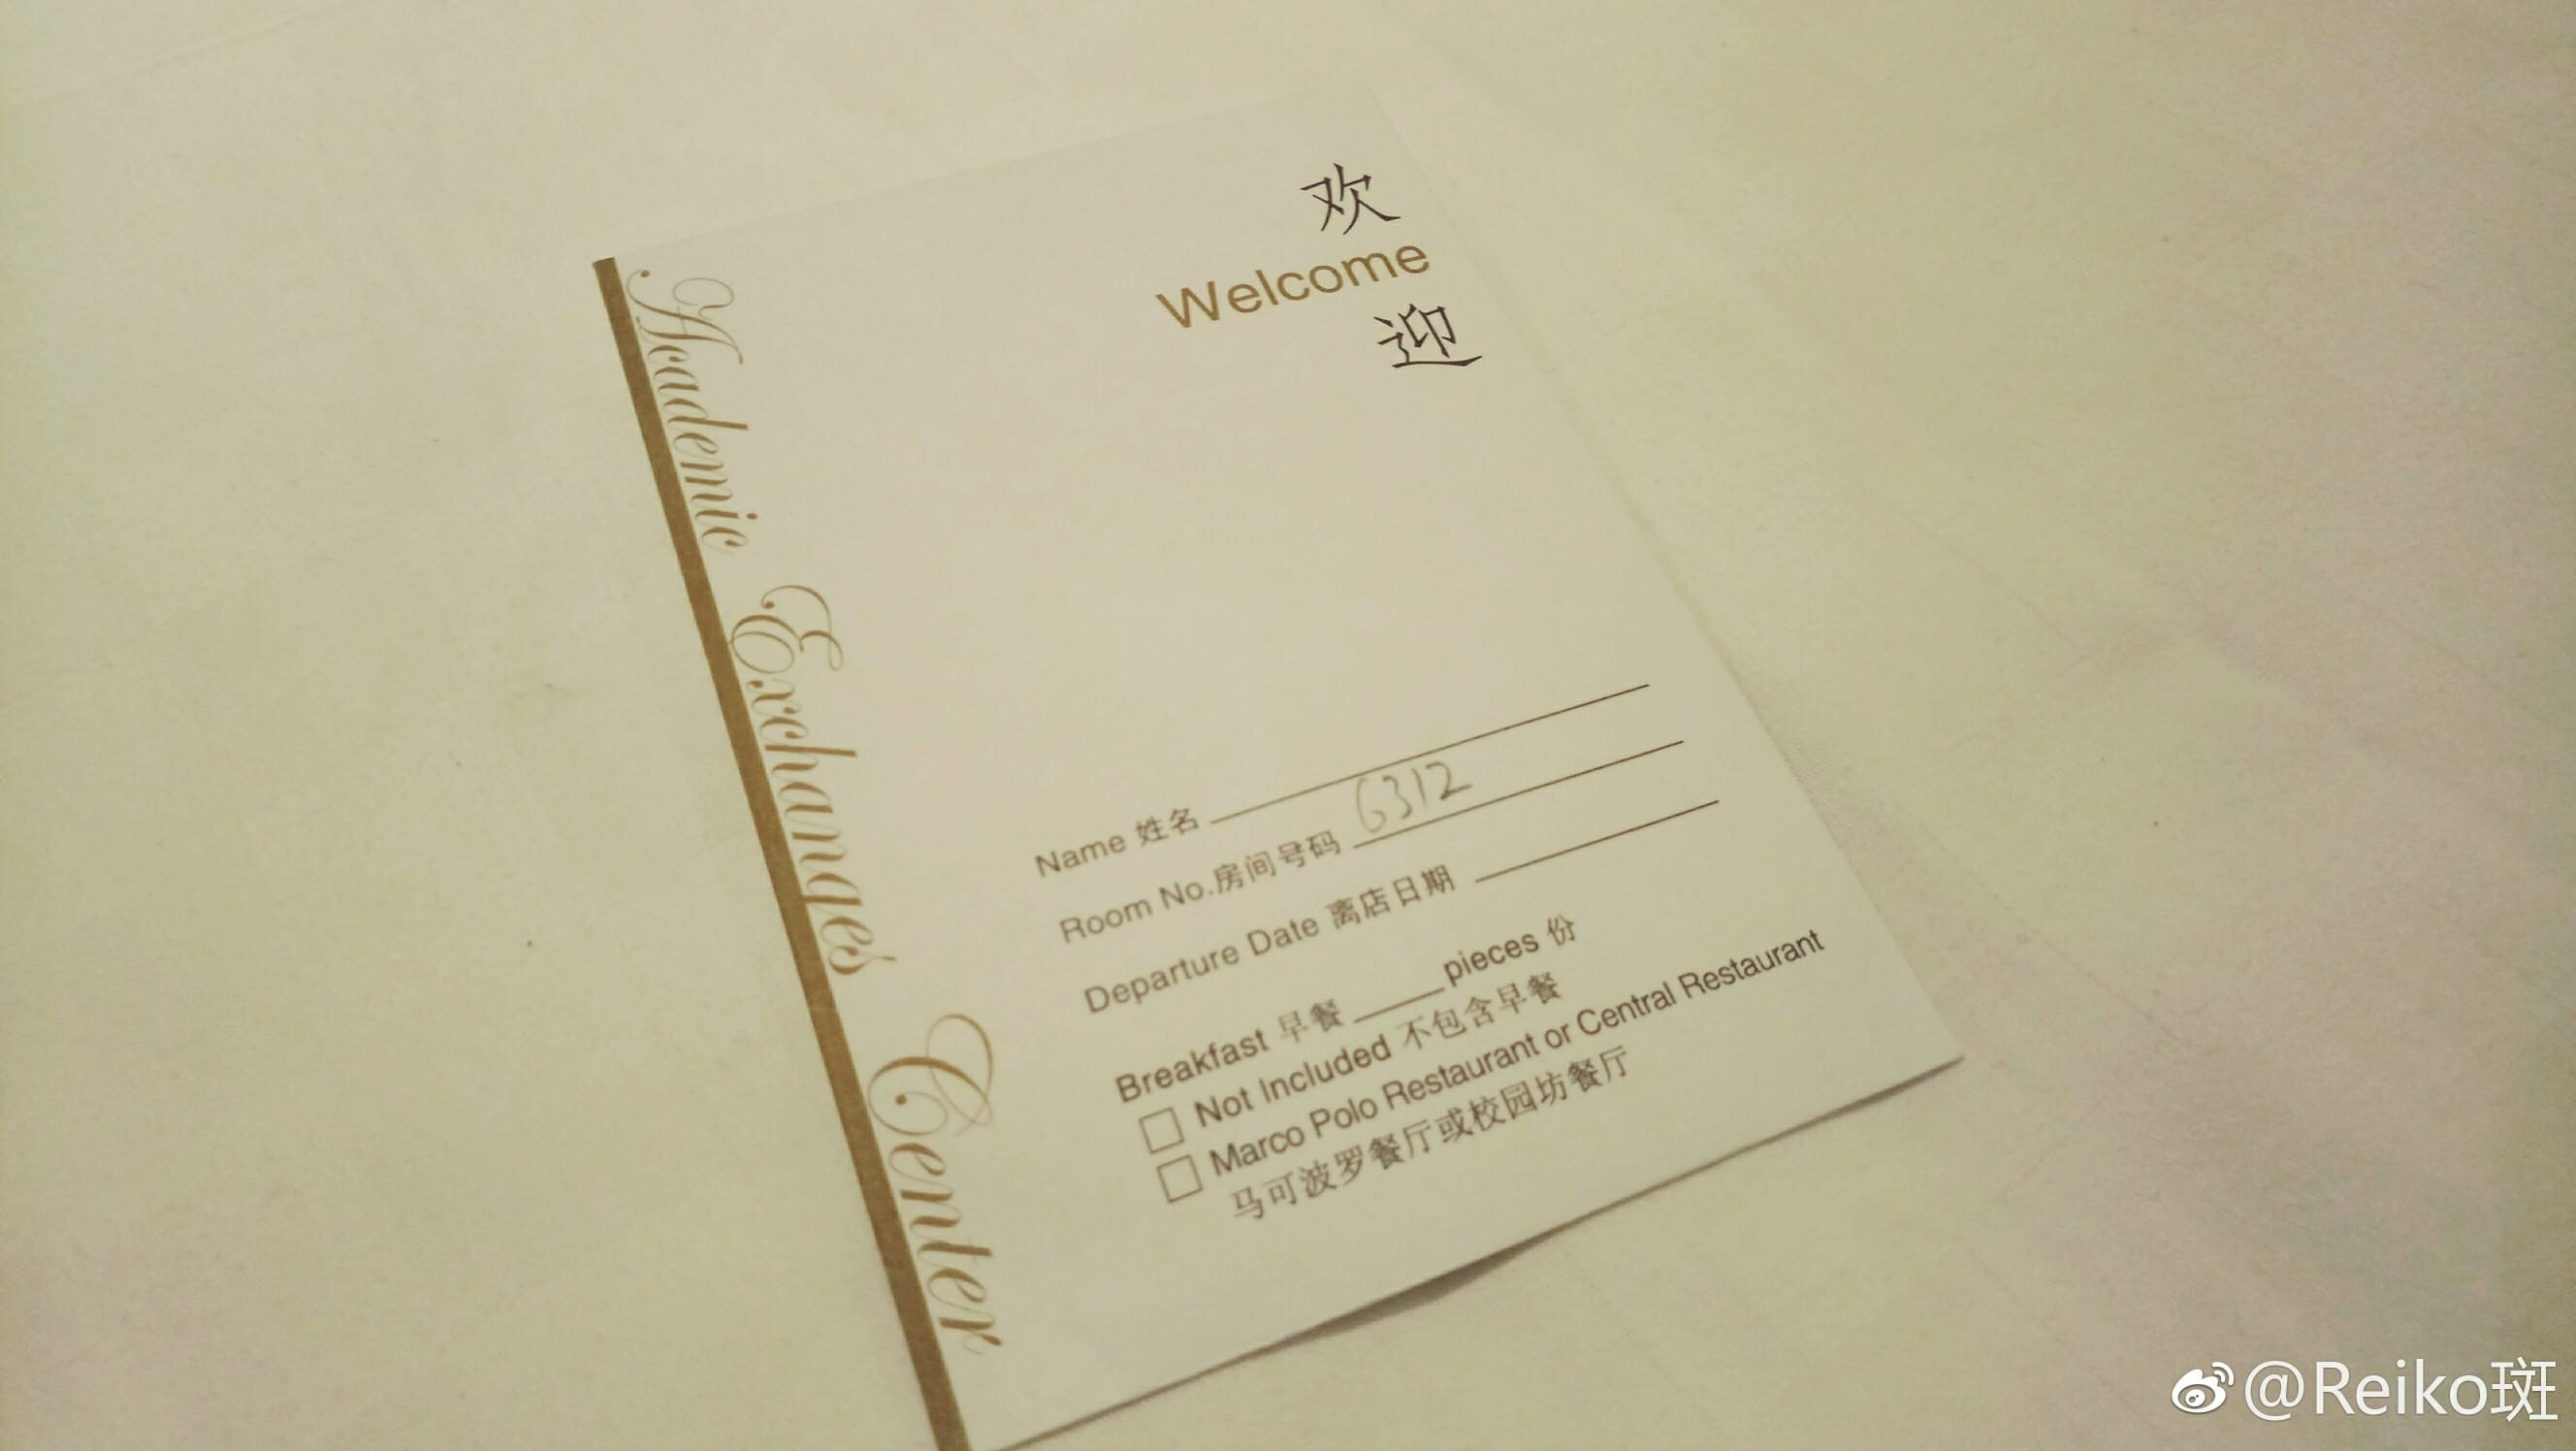 欢
Welcome
迎
Academic Exchanges Center
Name 姓名
Room No.房间号码 6312
Departure Date 离店日期
Breakfast 早餐 pieces 份
Not Included 不包含早餐
Marco Polo Restaurant or Central Restaurant
马可波罗餐厅或校园坊餐厅
@Reiko斑